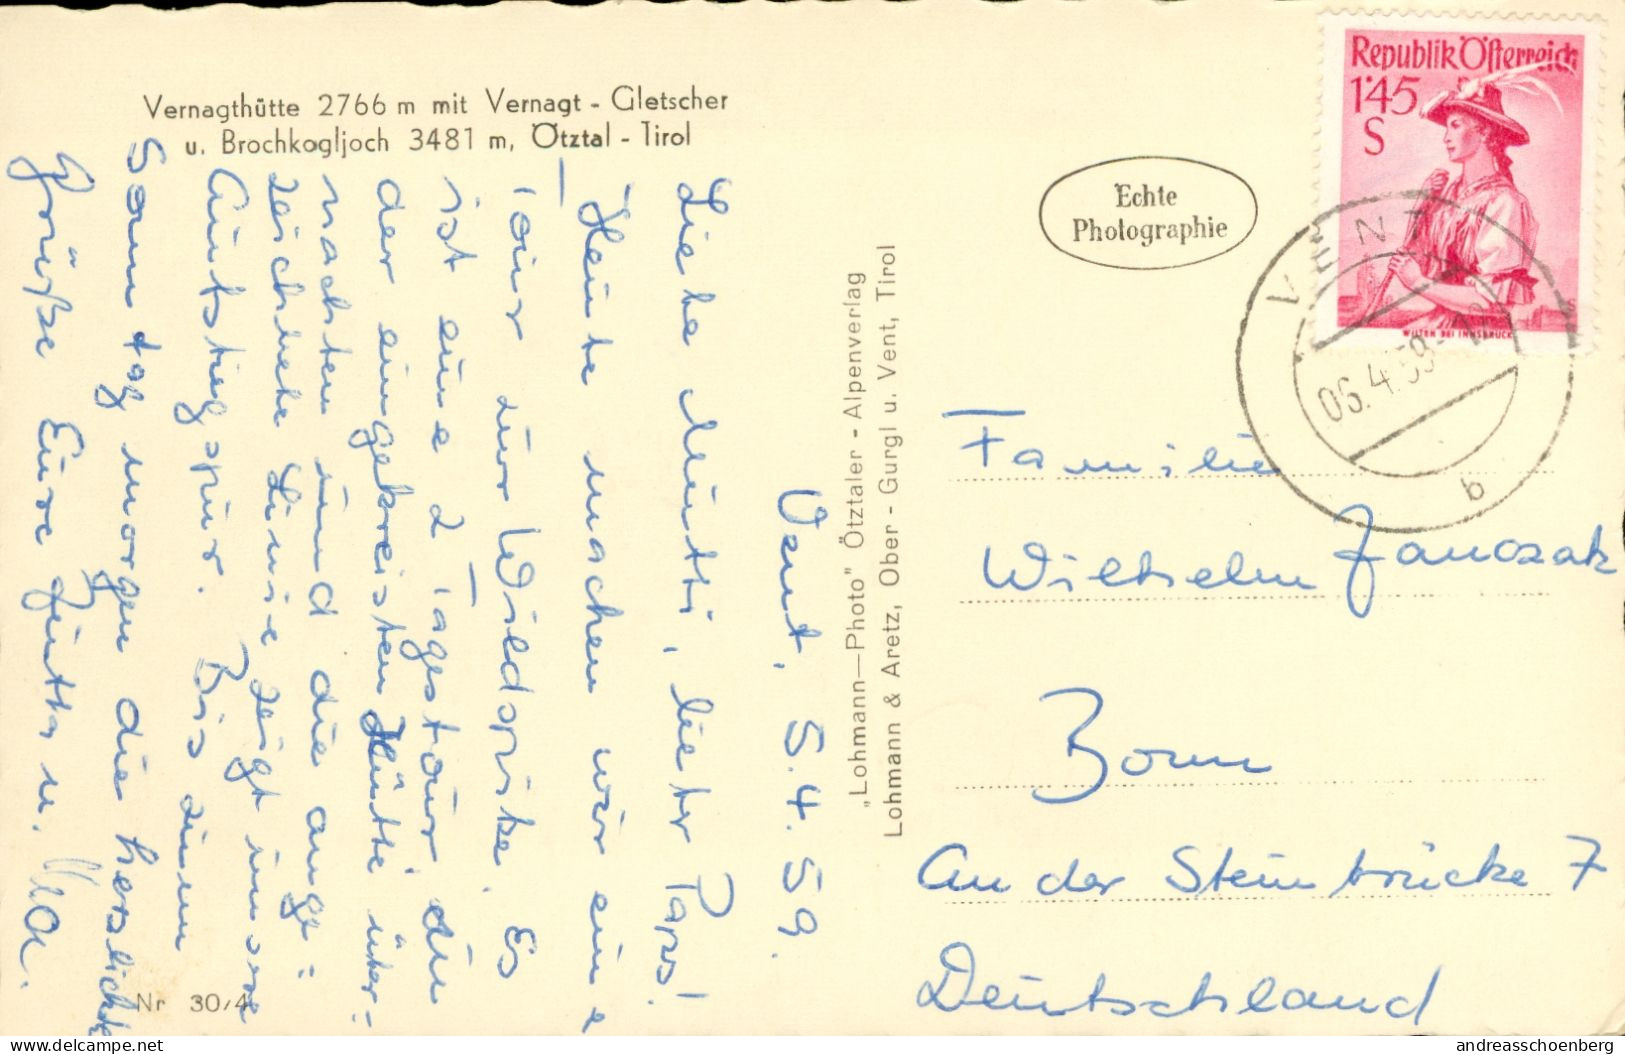 Vernagthütte 2766 m mit Vernagt - Gletscher
u. Brochkogljoch 3481 m, Ötztal - Tirol
Vent, 5.4.59.
Liebe Mutti, lieber Paps!
Heute machen wir eine
Tour zur Wildspitze. Es
ist eine 2 Tagestour, in
der eingekreisten Hütte über=
nachten und die ange=
zeichnete Linie zeigt unsre
Aufstiegspur. Bis zum
Sonntag morgen die herzlichsten
Grüße Eure u.
„Lohmann—Photo" Ötztaler - Alpenverlag
Lohmann & Aretz, Ober - Gurgl u. Vent, Tirol
Nr 30/4
Echte
Photographie
Republik Österreich
1·45
S
WILTEN BEI INNSBRUCK
VENT
06.4.59
b
Familie
Wilhelm Janoszak
Bonn
An der Steinbrücke 7
Deutschland
delcampe.net
andreasschoenberg